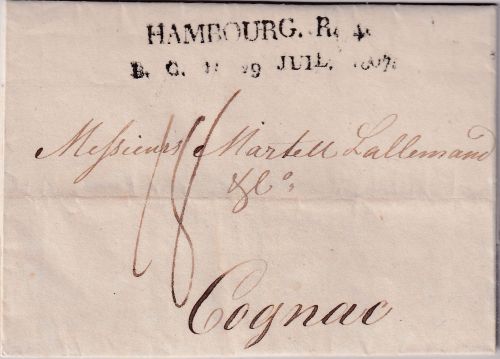 HAMBOURG. R. 4.
B. G. D. 29 JUIL. 1807.
Messieurs Martell Lallemand
& Co.
18
Cognac